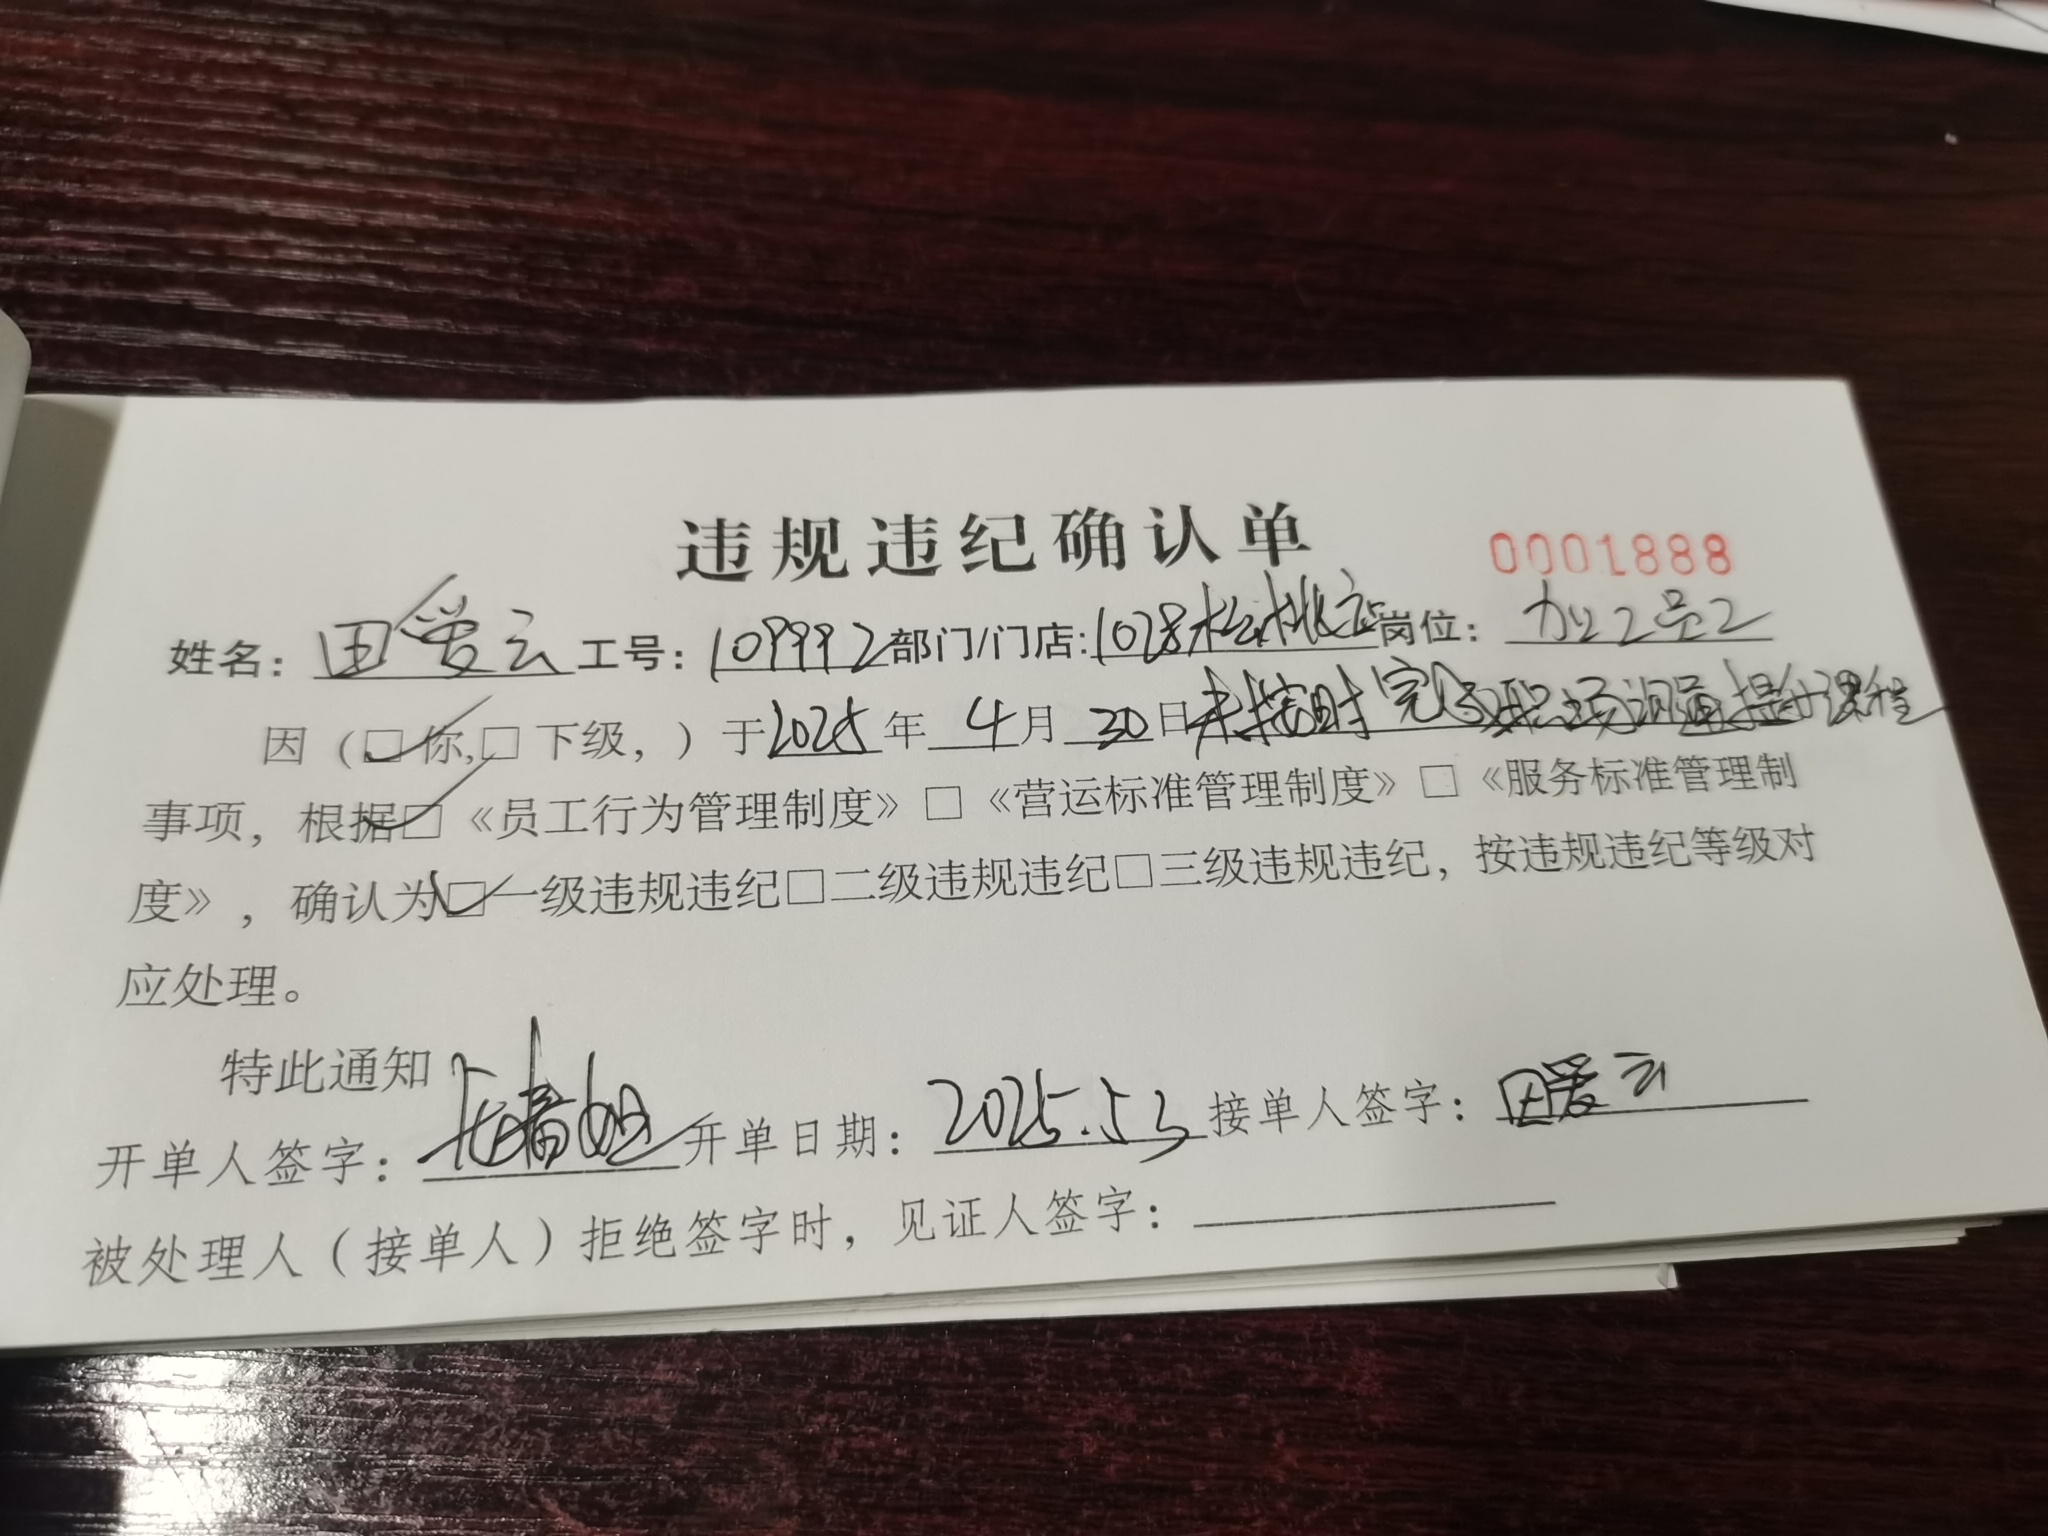 违规违纪确认单 0001888
姓名：田爱云 工号：109992 部门/门店:1028松桃店 岗位：加工员工
因（☑你,□下级，）于2025年4月30日未按时完成职场沟通提升课程
事项，根据☑《员工行为管理制度》□《营运标准管理制度》□《服务标准管理制
度》，确认为☑一级违规违纪□二级违规违纪□三级违规违纪，按违规违纪等级对
应处理。
特此通知
开单人签字： 开单日期：2025.5.3 接单人签字：田爱云
被处理人（接单人）拒绝签字时，见证人签字：